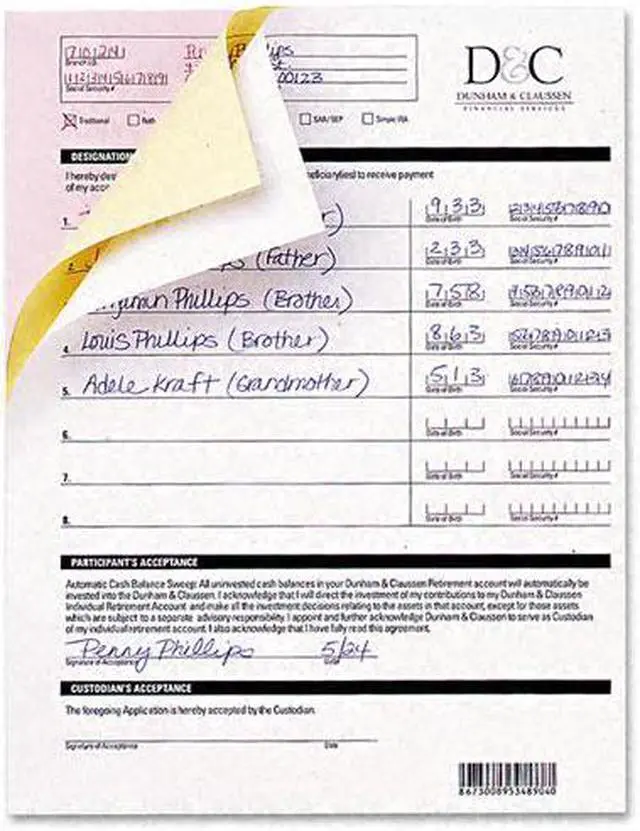 D&C
DUNHAM & CLAUSSEN
FINANCIAL SERVICES
00123
Social Security #
Traditional
SAR/SEP
Simple IRA
DESIGNATION
I hereby des
to receive payment
of my acco
1.
9 3 3
Date of Birth
Social Security #
(Father)
2 3 3
Date of Birth
Social Security #
Phillips (Brother)
7 5 8
Date of Birth
Social Security #
4. Louis Phillips (Brother)
8 6 3
Date of Birth
Social Security #
5. Adele Kraft (Grandmother)
5 1 3
Date of Birth
Social Security #
6.
Date of Birth
Social Security #
7.
Date of Birth
Social Security #
8.
Date of Birth
Social Security #
PARTICIPANT'S ACCEPTANCE
Automatic Cash Balance Sweep: All uninvested cash balances in your Dunham & Claussen Retirement account will automatically be
invested into the Dunham & Claussen. I acknowledge that I will direct the investment of my contributions to my Dunham & Claussen
Individual Retirement Account and make all the investment decisions relating to the assets in that account, except for those assets
which are subject to a separate advisory responsibility. I appoint and further acknowledge Dunham & Claussen to serve as Custodian
of my individual retirement account. I also acknowledge that I have fully read this agreement.
Penny Phillips 5/24
Signature of Acceptance Date
CUSTODIAN'S ACCEPTANCE
The foregoing Application is hereby accepted by the Custodian.
Signature of Acceptance Date
8673008953489040